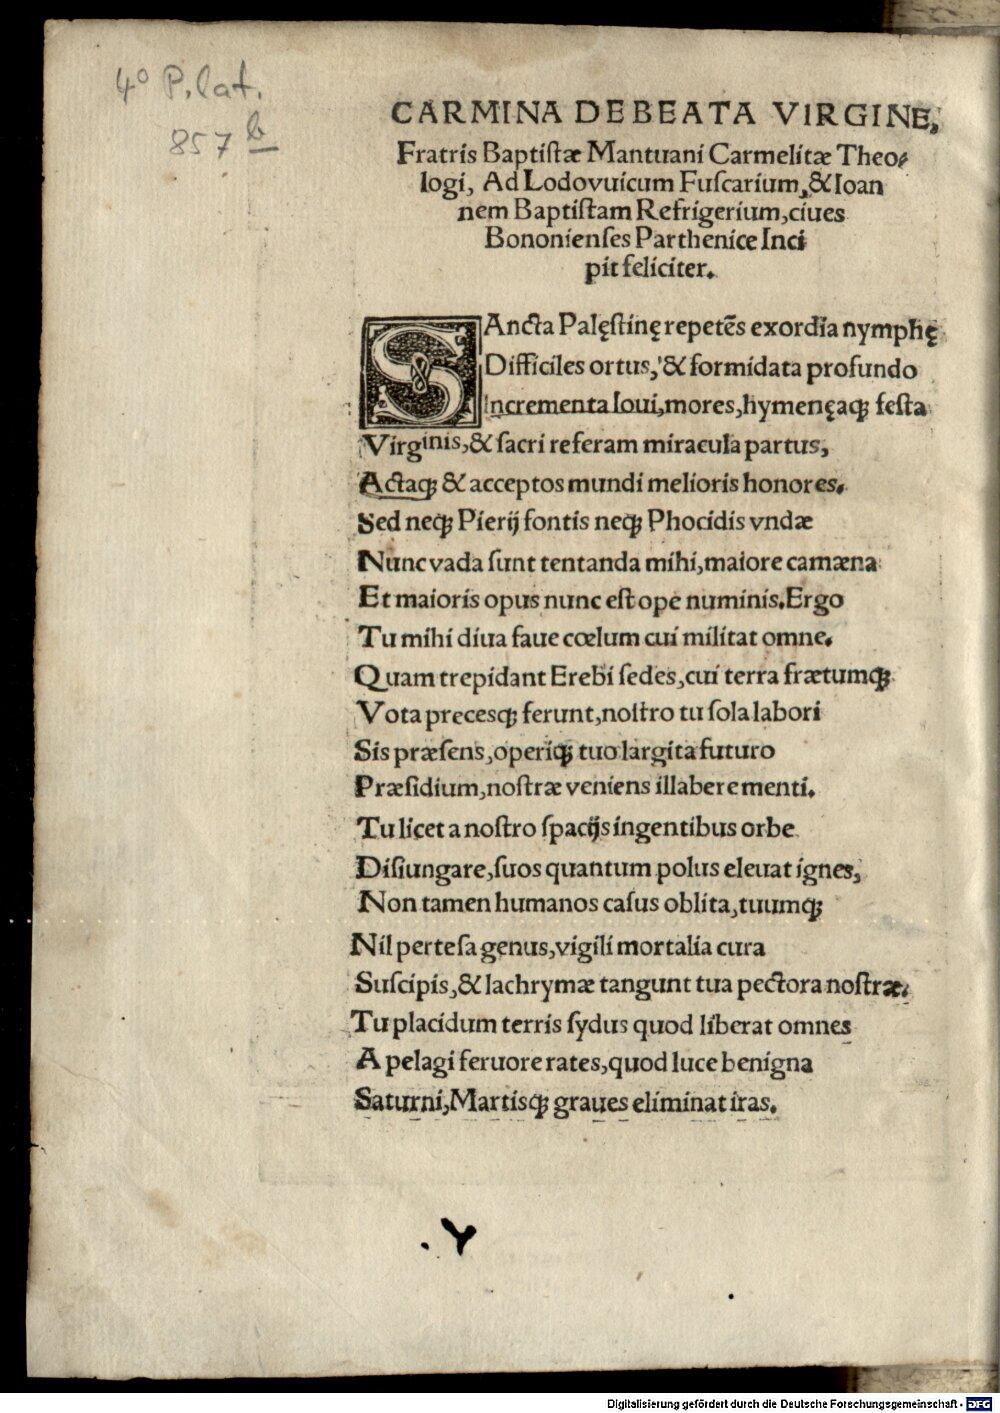 4° P. lat.
857 b
CARMINA DE BEATA VIRGINE,
Fratris Baptiſtæ Mantuani Carmelitæ Theo-
logi, Ad Lodouuicum Fuſcarium, & Ioan
nem Baptiſtam Refrigerium, ciues
Bononienſes Parthenice Inci
pit feliciter.
SAncta Palęſtinę repetẽs exordia nymphę
Difficiles ortus, & formidata profundo
Incrementa Ioui, mores, hymenęaqꝫ feſta
Virginis, & ſacri referam miracula partus,
Actaqꝫ & acceptos mundi melioris honores.
Sed neqꝫ Pierij fontis neqꝫ Phocidis vndæ
Nunc vada ſunt tentanda mihi, maiore camæna
Et maioris opus nunc eſt ope numinis. Ergo
Tu mihi diua faue cœlum cui militat omne.
Quam trepidant Erebi ſedes, cui terra frætumqꝫ
Vota precesqꝫ ferunt, noſtro tu ſola labori
Sis præſens, operiqꝫ tuo largita futuro
Præſidium, noſtræ veniens illabere menti.
Tu licet a noſtro ſpacijs ingentibus orbe
Diſiungare, ſuos quantum polus eleuat ignes,
Non tamen humanos caſus oblita, tuumqꝫ
Nil perteſa genus, vigili mortalia cura
Suſcipis, & lachrymæ tangunt tua pectora noſtræ.
Tu placidum terris ſydus quod liberat omnes
A pelagi feruore rates, quod luce benigna
Saturni, Martisqꝫ graues eliminat iras.
Digitalisierung gefördert durch die Deutsche Forschungsgemeinschaft - DFG